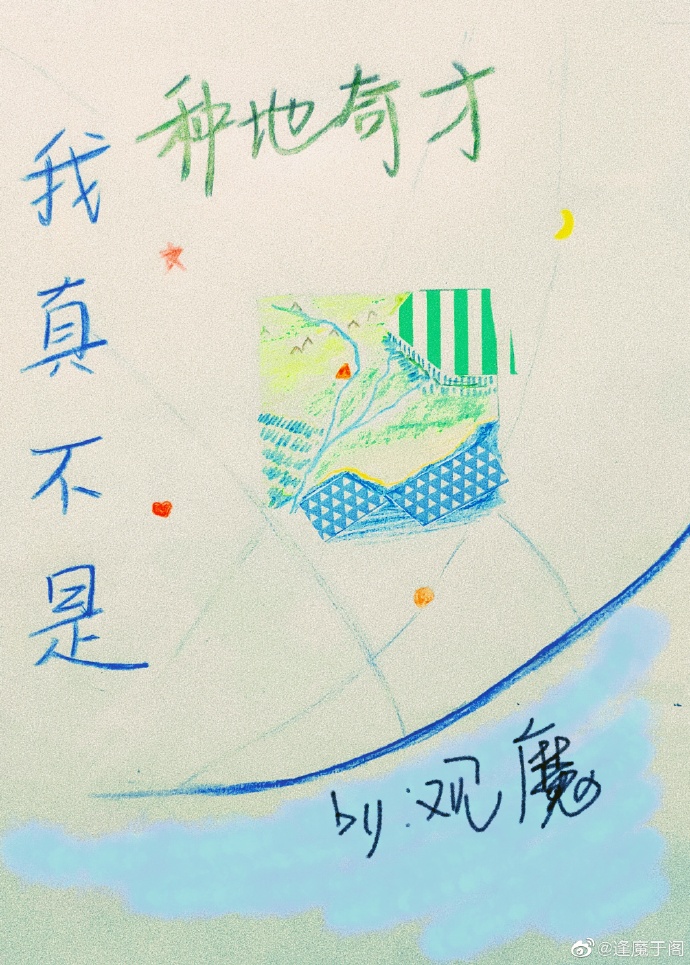 我真不是
种地奇才
by:观魔
@逢魔于阁